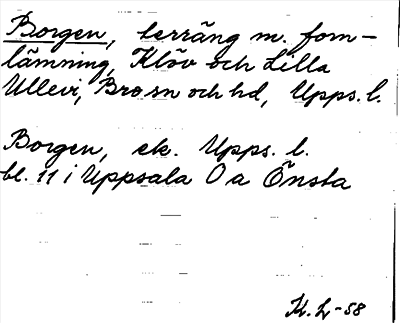 Borgen, terräng m. forn-
lämning, Klöv och Lilla
Ullevi, Bro sn och hd, Upps. l.
Borgen, ek. Upps. l.
bl. 11 i Uppsala O a Önsta
Kl. L-58